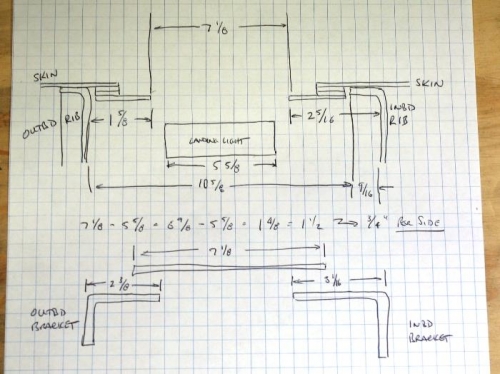 7 1/8
SKIN
SKIN
OUTBD RIB
1 5/8
LANDING LIGHT
2 5/16
INBD RIB
5 5/8
10 5/8
9/16
7 1/8 - 5 5/8 = 6 9/8 - 5 5/8 = 1 4/8 = 1 1/2 → 3/4" PER SIDE
7 1/8
3 1/16
OUTBD BRACKET
INBD BRACKET